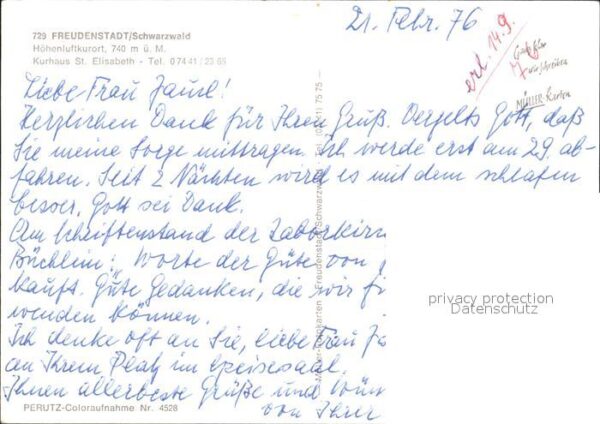 21. Febr. 76
729 FREUDENSTADT/Schwarzwald
Höhenluftkurort, 740 m ü. M.
Kurhaus St. Elisabeth - Tel. 0 74 41 / 23 65
erl. 14.9.
MÜLLER-Karten
Liebe Frau
Herzlichen Dank für Ihren Gruß. Vergelts Gott, daß
Sie meine Sorge mittragen. Ich werde erst am 29. ab-
fahren. Seit 2 Nächten wird es mit dem schlafen
besser, Gott sei Dank.
Am Schriftenstand der Taborkir
Büchlein: Worte der Güte von
kauft. Gute Gedanken, die wir
wenden können.
Ich denke oft an Sie, liebe Frau Ja
an Ihrem Platz im Speisesaal.
Ihnen allerbeste Grüße und Wün
von Ihrer
PERUTZ-Coloraufnahme Nr. 4528
Freudenstadt/Schwarzwald
privacy protection
Datenschutz